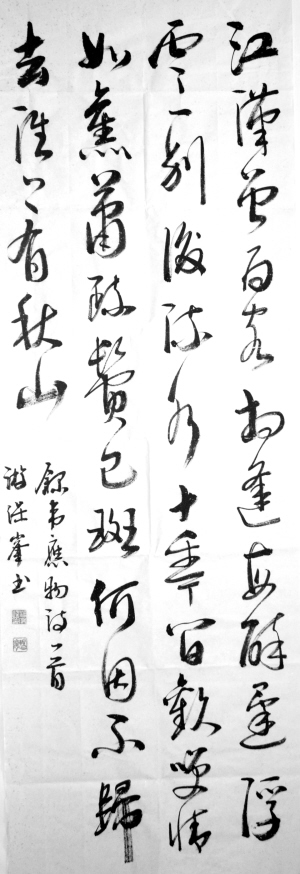 江漢曾為客相逢每醉還浮
雲一別後流水十年間歡笑情
如舊蕭疏鬢已斑何因不歸
去淮上有秋山
錄韋應物詩一首
峯書